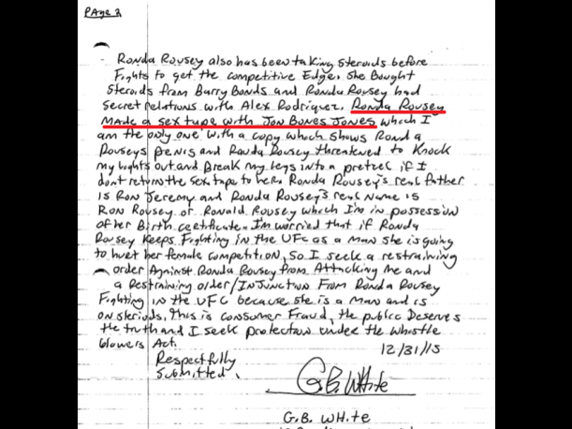 PAGE 2
Ronda Rousey also has been taking steroids before
Fights to get the competitive Edge. She bought
Steroids from Barry Bonds and Ronda Rousey had
Secret relations with Alex Rodriquez. Ronda Rousey
Made a sex tape with Jon Bones Jones which I
am the only one with a copy which shows Ronda
Rouseys Penis and Ronda Rousey threatened to Knock
my lights out and Break my legs into a pretzel if I
dont return the sex tape to her. Ronda Rousey's real father
is Ron Jeremy and Ronda Rousey's real name is
Ron Rousey or Ronald Rousey which I'm in possession
of her Birth certificate. I'm worried that if Ronda
Rousey Keeps Fighting in the UFC as a man she is going
to hurt her female competition, so I seek a restraining
order Against Ronda Rousey from Attacking me and
a Restraining order/INJUNCTION From Ronda Rousey
Fighting in the UFC because she is a man and is
on steriods. This is consumer Fraud, the public Deserves
the truth and I seek protection under the Whistle
blowers Act.
12/31/15
Respectfully
Submitted.
G.B. White
G.B. White